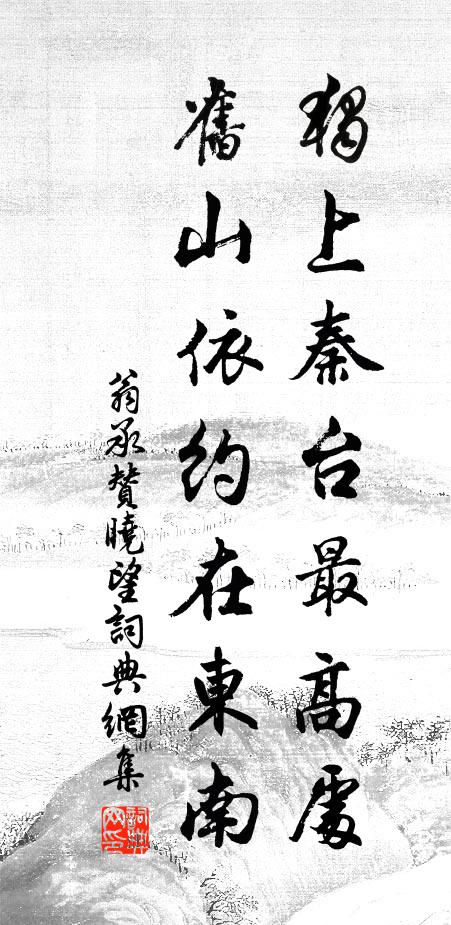 獨上秦台最高處
舊山依約在東南
翁承贊曉望詞典網集